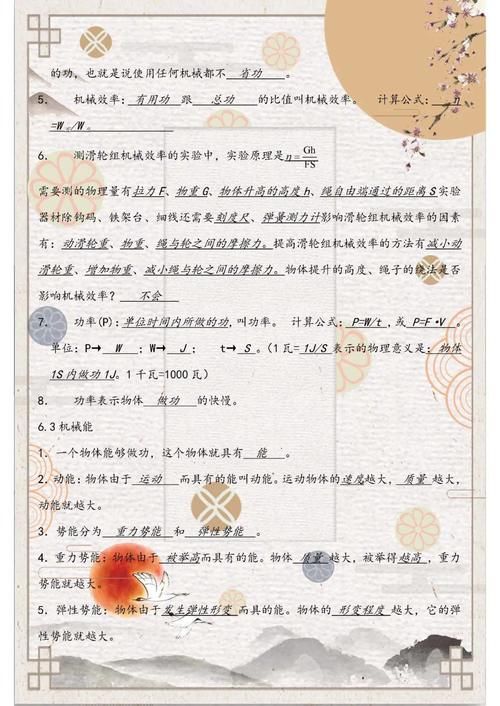 的功，也就是说使用任何机械都不 省功 。
5． 机械效率：有用功 跟 总功 的比值叫机械效率。 计算公式： η
=W有/W。
6． 测滑轮组机械效率的实验中，实验原理是η=Gh/FS
需要测的物理量有拉力F、物重G、物体升高的高度h、绳自由端通过的距离S实验
器材除钩码、铁架台、细线还需要刻度尺、弹簧测力计影响滑轮组机械效率的因素
有：动滑轮重、物重、绳与轮之间的摩擦力。提高滑轮组机械效率的方法有减小动
滑轮重、增加物重、减小绳与轮之间的摩擦力。物体提升的高度、绳子的绕法是否
影响机械效率？ 不会
7． 功率(P)：单位时间内所做的功,叫功率。 计算公式： P=W/t ,或 P=F•V 。
单位：P→ W ；W→ J ； t→ S 。（1瓦= 1J/S 表示的物理意义是：物体
1S内做功1J。1千瓦=1000瓦）
8． 功率表示物体 做功 的快慢。
6.3机械能
1．一个物体能够做功，这个物体就具有 能 。
2．动能：物体由于 运动 而具有的能叫动能。运动物体的速度越大，质量 越大，
动能就越大。
3．势能分为 重力势能 和 弹性势能 。
4．重力势能：物体由于 被举高而具有的能。物体 质量 越大，被举得越高，重力
势能就越大。
5．弹性势能：物体由于发生弹性形变 而具的能。物体的 形变程度 越大，它的弹
性势能就越大。